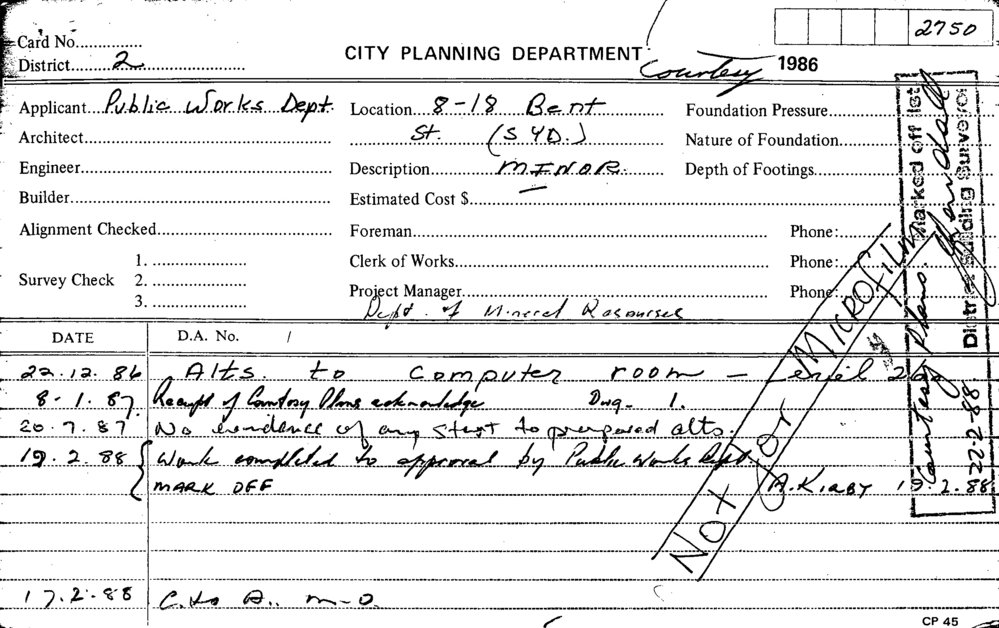 2750
Card No...............
CITY PLANNING DEPARTMENT
Courtesy 1986
District.......2.......................
Applicant...Public Works Dept.
Location...8-18 Bent
Foundation Pressure
Architect
St. (SYD.)
Nature of Foundation
Engineer
Description...MINOR
Depth of Footings
Builder
Estimated Cost $
Alignment Checked
Foreman
Phone:
1.
Clerk of Works
Phone:
Survey Check 2.
3.
Project Manager
Phone:
Dept. of Mineral Resources
DATE D.A. No. /
22.12.86 Alts. to computer room - level 22
8.1.87. Receipt of Courtesy Plans acknowledge Dwg. 1.
20.7.87 No evidence of any start to proposed alts.
19.2.88 Work completed to approval by Public Works Dept.
MARK OFF A. KIRBY 19.2.88
17.2.88 C. to A.. m-o.
NOT FOR MICROFILM
Marked off list
Courtesy Plans.
District Building Surveyor
22-2-88
CP 45